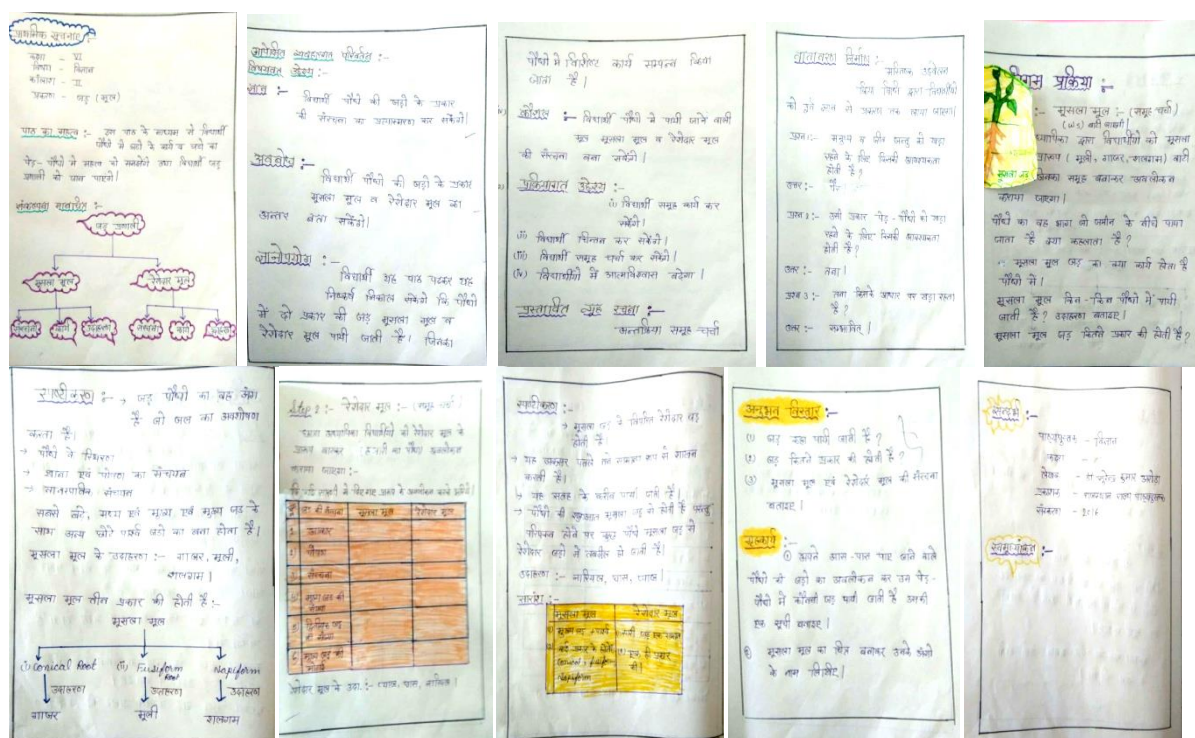 प्राथमिक सूचनाएं :-
कक्षा - VI
विषय - विज्ञान
कालांश - II
प्रकरण - जड़ (मूल)
पाठ का सारांश :- इस पाठ के माध्यम से विद्यार्थी
पौधों में जड़ों के कार्य व जड़ों का
पेड़-पौधों में महत्व को समझेंगे तथा विद्यार्थी जड़
प्रणाली को जान पाएंगे।
संकल्पना मानचित्र :-
जड़ प्रणाली
मूसला मूल
रेशेदार मूल
संरचना
कार्य
उदाहरण
संरचना
कार्य
उदाहरण
अपेक्षित व्यवहारगत परिवर्तन :-
विषयगत उद्देश्य :-
ज्ञान :-
विद्यार्थी पौधों की जड़ों के प्रकार
की संरचना का प्रत्यास्मरण कर सकेंगे।
अवबोध :-
विद्यार्थी पौधों की जड़ों के प्रकार
मूसला मूल व रेशेदार मूल का
अन्तर बता सकेंगे।
ज्ञानोपयोग :-
विद्यार्थी यह पाठ पढ़कर यह
निष्कर्ष निकाल सकेंगे कि पौधों
में दो प्रकार की जड़ मूसला मूल व
रेशेदार मूल पायी जाती है। जिनका
पौधों में विशिष्ट कार्य सम्पन्न किया
जाता है।
कौशल :- विद्यार्थी पौधों में पायी जाने वाली
मूल मूसला मूल व रेशेदार मूल
की संरचना बना सकेंगे।
प्रक्रियागत उद्देश्य :-
(i) विद्यार्थी समूह कार्य कर
सकेंगे।
(ii) विद्यार्थी चिन्तन कर सकेंगे।
(iii) विद्यार्थी समूह चर्चा कर सकेंगे।
(iv) विद्यार्थियों में आत्मविश्वास बढ़ेगा।
प्रस्तावित व्यूह रचना :-
अन्तःक्रिया समूह-चर्चा
वातावरण निर्माण :-
मस्तिष्क उद्वेलन
विधि द्वारा विद्यार्थियों
को पूर्व ज्ञान से प्रकरण तक लाया जाएगा।
प्रश्न 1:- मनुष्य व जीव जन्तु को खड़ा
रहने के लिए किसकी आवश्यकता
होती है?
उत्तर :- पैर
प्रश्न 2:- उसी प्रकार पेड़-पौधों को खड़ा
रहने के लिए किसकी आवश्यकता
होती है?
उत्तर :- तना।
प्रश्न 3:- तना किसके आधार पर खड़ा रहता
है?
उत्तर - सम्भावित।
प्रक्रिया :-
मूसला मूल :- (समूह चर्चा)
मूसला जड़
द्वारा विद्यार्थियों को मूसला
(मूली, गाजर, शलगम) बांटी
समूह बनाकर अवलोकन
कराया जाएगा।
पौधों का वह भाग जो जमीन के नीचे पाया
जाता है क्या कहलाता है?
मूसला मूल जड़ का क्या कार्य होता है
पौधों में।
मूसला मूल किन-किन पौधों में पायी
जाती है? उदाहरण बताइए।
मूसला मूल जड़ कितने प्रकार की होती है?
स्पष्टीकरण :- → जड़ पौधों का वह अंग
है जो जल का अवशोषण
करता है।
→ पौधों में स्थिरता
→ खाना एवं पोषण का संचयन
→ संचरण
सबसे छोटे, मध्य एवं मुख्य एवं मुख्य जड़ के
साथ अन्य छोटे पार्श्व जड़ों का बना होता है।
मूसला मूल के उदाहरण :- गाजर, मूली,
शलगम।
मूसला मूल तीन प्रकार की होती है :-
मूसला मूल
(i) Conical Root
(ii) Fusiform Root
Napiform
उदाहरण
उदाहरण
उदाहरण
गाजर
मूली
शलगम
Step 2 :- रेशेदार मूल :- (समूह चर्चा)
विद्यार्थियों को रेशेदार मूल के
अवलोकन
कराया जाएगा :-
मूसला मूल
रेशेदार मूल
आकार
संरचना
रेशेदार मूल के उदा. :- प्याज, घास, नारियल।
स्पष्टीकरण :-
→ मूसला जड़ से विपरीत रेशेदार जड़
होती है।
→ यह अक्सर पतली तने समान रूप से
करती है।
→ यह सतह के करीब पायी जाती है।
→ पौधों की शुरुआत मूसला जड़ से होती है परन्तु
परिपक्व होने पर कुछ पौधे मूसला जड़ से
रेशेदार जड़ों में तब्दील हो जाती है।
उदाहरण :- नारियल, घास, प्याज।
सारांश :-
मूसला मूल
रेशेदार मूल
Conical, Fusiform
Napiform
अनुभव विस्तार :-
(1) जड़ कहा पायी जाती है?
(2) जड़ कितने प्रकार की होती है?
(3) मूसला मूल एवं रेशेदार मूल की संरचना
बताइए।
गृहकार्य :-
① अपने आस-पास पाए जाने वाले
पौधों की जड़ों का अवलोकन कर उन पेड़-
पौधों में कौनसी जड़ पायी जाती है उसकी
एक सूची बनाइए।
② मूसला मूल का चित्र बनाकर उनके अंगों
के नाम लिखिए।
सन्दर्भ :-
पाठ्यपुस्तक - विज्ञान
कक्षा - 7
लेखक - कुमार अरोड़ा
प्रकाशन - राजस्थान राज्य पाठ्यपुस्तक
संस्करण - 2016
स्वमूल्यांकन :-